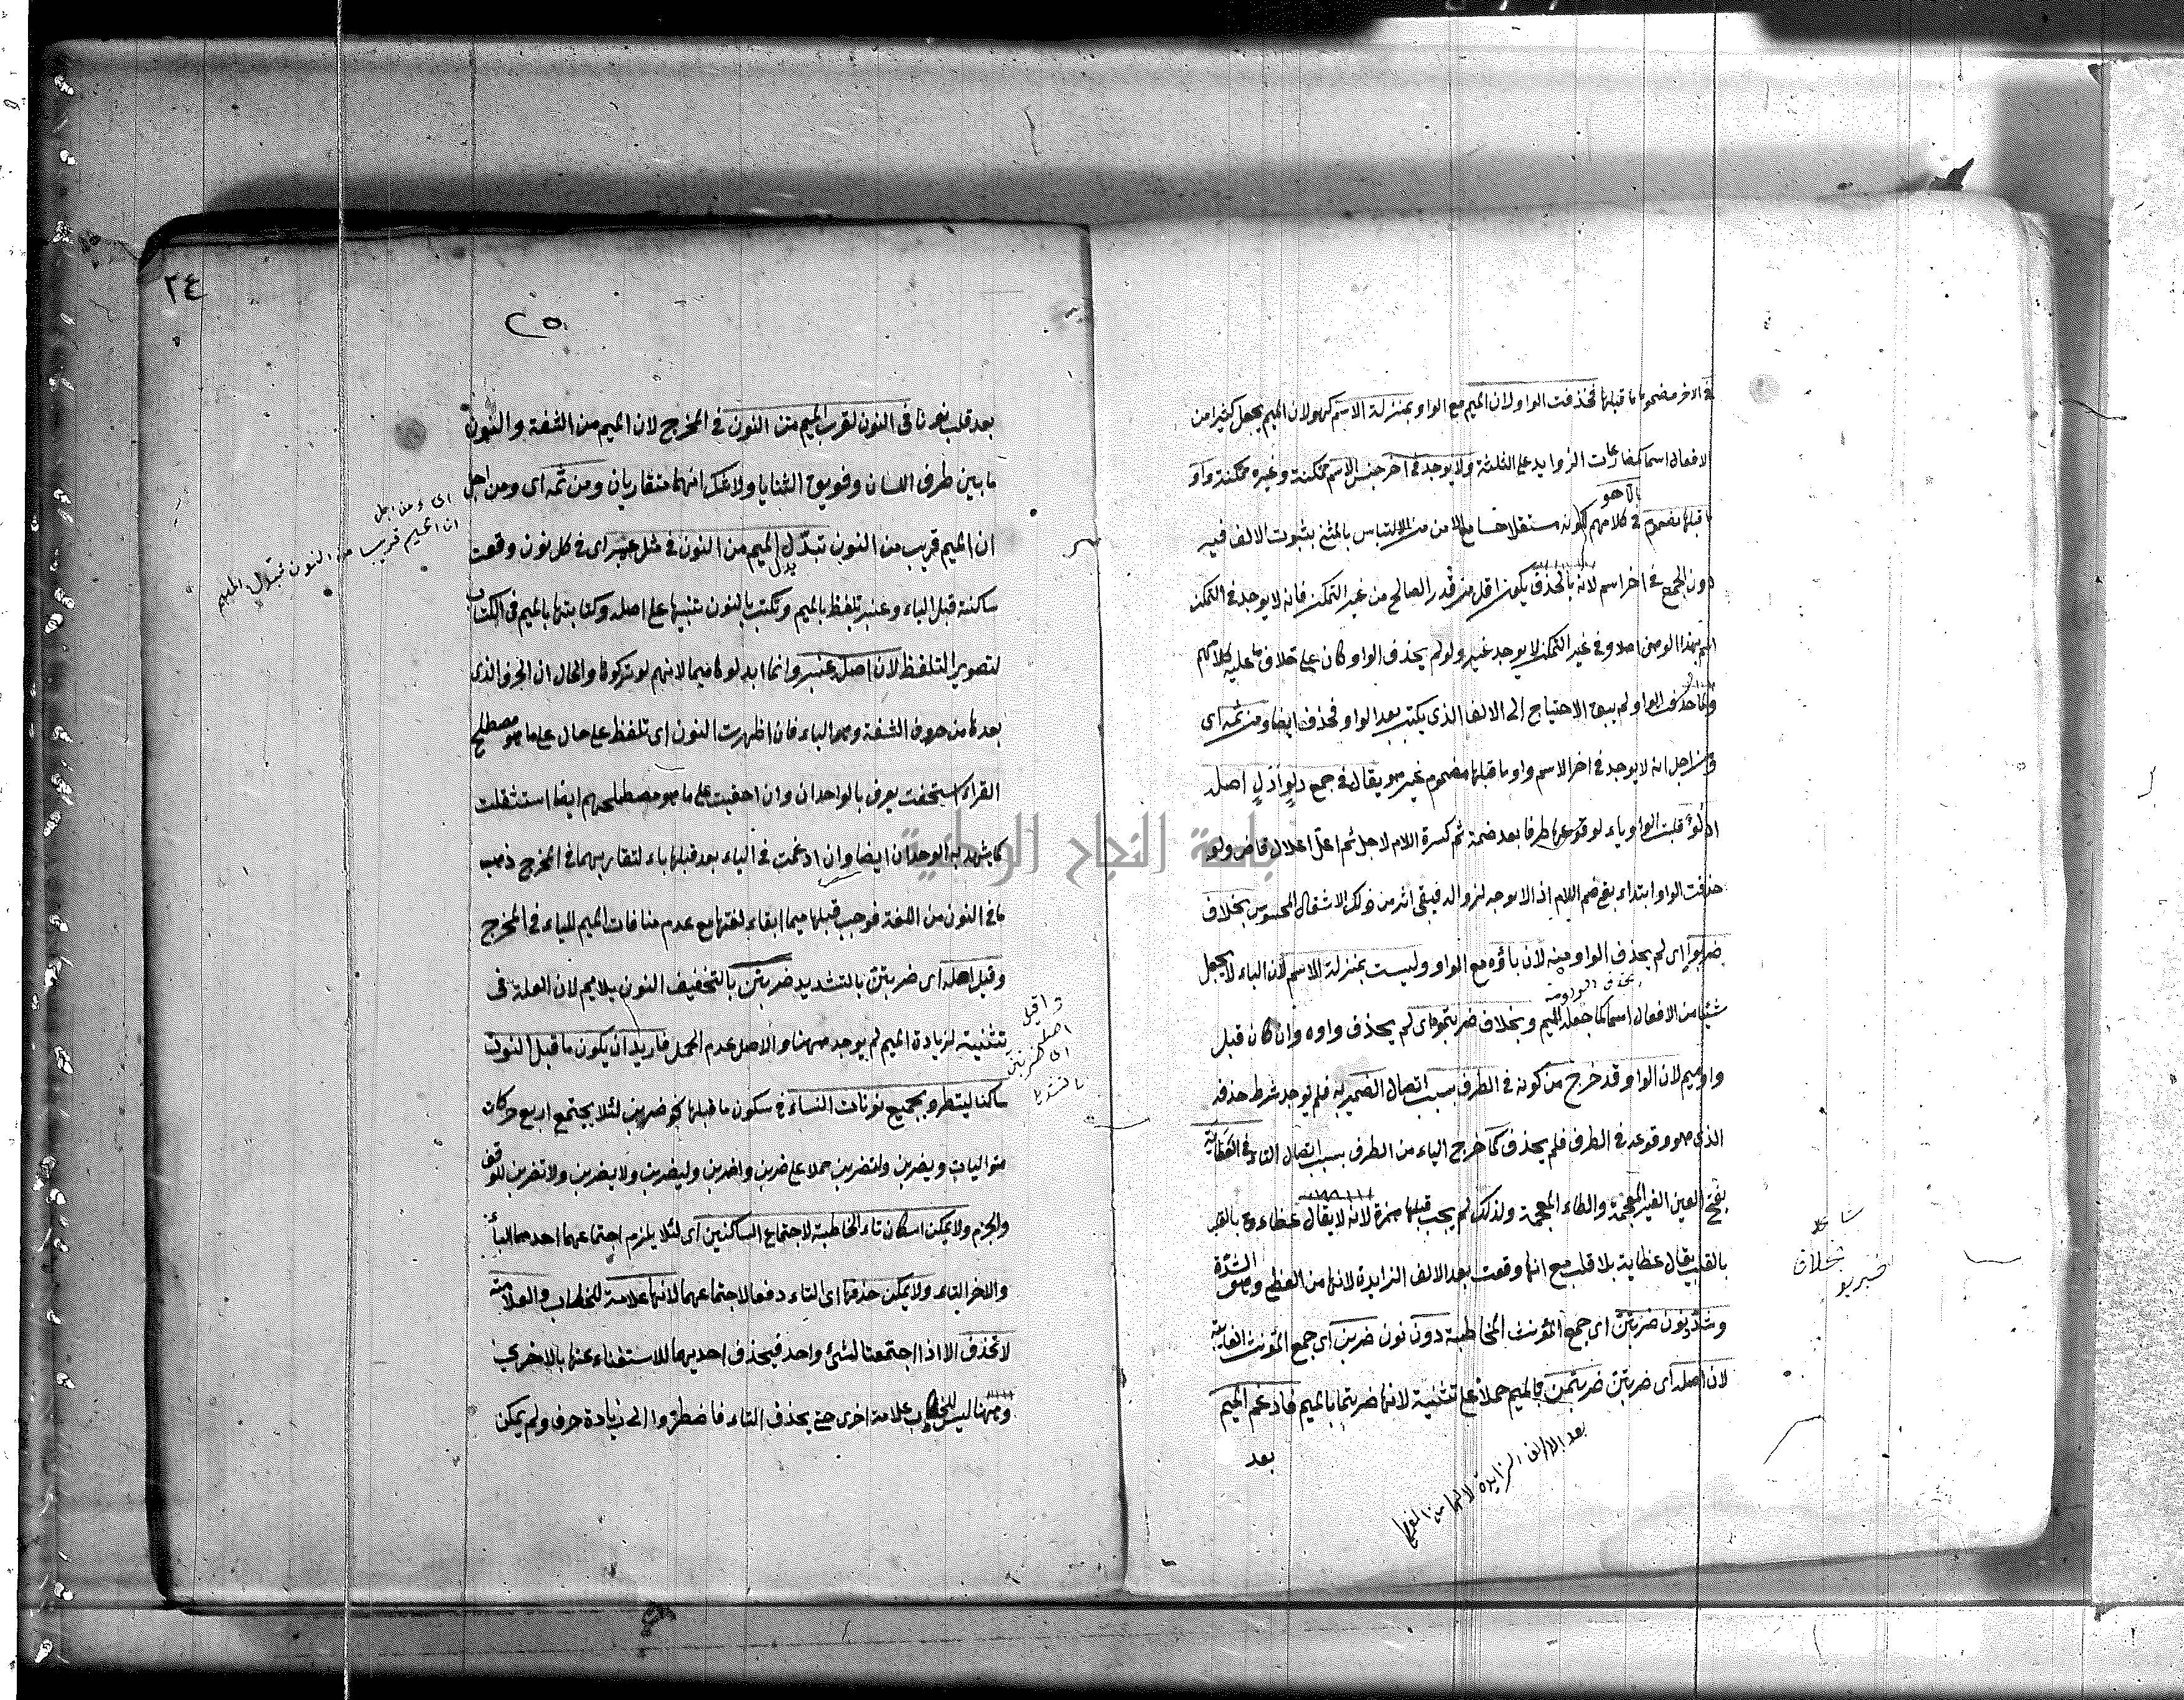 في الاخر مضموما ما قبلها فحذفت الواو لان الميم مع الواو بمنزلة الاسم كهو لان الميم يجعل كثيرا من
الافعال اسما كمضارعات الزوايد على الثلثة ولا يوجد في اخر جنس الاسم متمكنة وغيره متمكنة واو
ما قبلها مضموم في كلامهم الا هو
دون الجمع في اخر اسم لانه بالحذف يكون اقل من قدر الصالح من غير التمكن فانه لا يوجد في التمكن
اسم بهذا الوصف اصلا وفي غير التمكن لا يوجد غيره ولو لم يحذف الواو كان على خلاف ما عليه كلامهم
ولما حذف الواو لم يبق الاحتياج الى الالف الذي يكتب بعد الواو فحذف ايضا ومن ثمه اى
ومن اجل انه لا يوجد في اخر الاسم واو ما قبلها مضموم غير هو يقال في جمع دلو ادل اصله
ادلو قلبت الواو ياء لوقوعها طرفا بعد ضمة ثم كسرة اللام لاجل ثم اعل اعلال قاض ولو
حذفت الواو ابتداء بقي ضم اللام اذ لا يوجد لزواله فيبقى اثر من ذلك الاثقال المحسوس بخلاف
ضربوا اى لم يحذف الواو منه لان باؤه مع الواو وليست بمنزلة الاسم لان الباء لا يجعل
شيئا من الافعال اسما كما جعله الميم وبخلاف ضربتموه اى لم يحذف واوه وان كان قبل
واو ميم لان الواو قد خرج من كونه في الطرف بسبب اتصال الضمير به فلم يوجد شرط حذفه
الذى هو وقوعه في الطرف فلم يحذف كما خرج الياء من الطرف بسبب اتصال التاء في العظاية
بفتح العين الغير المعجمة والظاء المعجمة ولذلك لم يجب قبلها همزة لانه لا يقال عظاءة
بالقلب يقال عظاية بلا قلب مع انها وقعت بعد الالف الزايدة لانها من العظى وهو الشدة
وشدد نون ضربتن اى جمع المؤنث المخاطبة دون نون ضربن اى جمع المؤنث الغايبة
لان اصله اى ضربتن ضربتمن فالميم حملا على تثنية لانها ضربتما بالميم فادغم الميم
بعد
بعد الالف الزايدة لانها من العظى
بخلاف
ضربو
٢٤
٢٥
بعد قلبه نونا في النون لقرب الميم من النون في المخرج لان الميم من الشفة والنون
ما بين طرف اللسان وفويق الثنايا ولا شك انهما متقاربان ومن ثمه اى ومن اجل
ان الميم قريب من النون تبدل الميم من النون في مثل عنبر اى في كل نون وقعت
ساكنة قبل الباء وعنبر تلفظ بالميم وتكتب بالنون تنبيها على اصله وكتابتها بالميم في الكتاب
لتصوير التلفظ لان اصل عنبر وانما ابدلوها ميما لانهم لو تركوها والحال ان الحرف الذى
بعدها من حروف الشفة وهو الباء فان اظهرت النون اى تلفظ على حال على ما هو مصطلح
القراء استخفت يعرف بالواحدان وان اخفيت على ما هو مصطلحهم ايضا استثقلت
كما يشهد به الوحدان ايضا وان ادغمت في الباء بعد قبلها باء لتقاربهما في المخرج ذهب
ما في النون من الغنة فوجب قبلها ميما ابقاء لغنتها مع عدم منافات الميم للباء في المخرج
وقيل اصله اى ضربتن بالتشديد ضربتن بالتخفيف النون بلا ميم لان العلة في
تثنية لزيادة الميم لم يوجد ههنا والاصل عدم الحمل فاريد ان يكون ما قبل النون
ساكنا ليتطرد بجميع نونات النساء في سكون ما قبلها نحو ضربن لئلا يجتمع اربع حركات
متواليات ويضربن ولتضربن حملا على ضربن واضربن وليضربن ولا يضربن ولا تضربن للوقف
والجزم ولا يمكن اسكان تاء المخاطبة لاجتماع الساكنين اى لئلا يلزم اجتماعهما احدهما الباء
والاخر التاء ولا يمكن حذفها اى التاء دفعا لاجتماعهما لانها علامة للخطاب والعلامة
لا تحذف الا اذا اجتمعتا لشئ واحد فيحذف احديهما للاستغناء عنها بالاخرى
وههنا ليس للخطاب علامة اخرى حتى يحذف التاء فاضطروا الى زيادة حرف ولم يمكن
اى ومن اجل
ان الميم قريبا من النون تبدل الميم
وقيل
اصله ضربتن
اى
بالتشديد
جامعة النجاح الوطنية